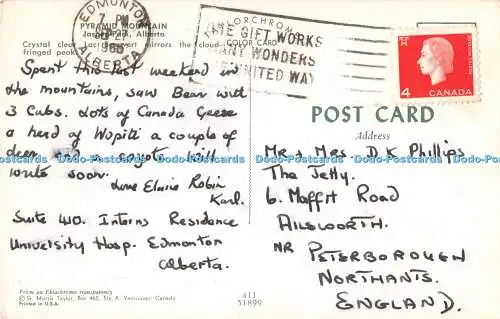 EDMONTON
7 PM
1965
ALBERTA
THE GIFT WORKS
MANY WONDERS
UNITED WAY
PYRAMID MOUNTAIN
Jasper Park, Alberta
Crystal clear Lac Beauvert mirrors the cloud
fringed peaks.
COLOR CARD
4 CANADA
Spent this last weekend in
the mountains, saw Bear with
3 Cubs. Lots of Canada Geese
a herd of Wapiti a couple of
deer and a coyote. Will
write soon.
Love Elaine Robin
Karl.
Suite 410. Interns Residence
University Hosp. Edmonton
Alberta.
POST CARD
Address
Mr. & Mrs. D K Phillips
The Jetty.
6. Moffit Road
AILSWORTH.
NR PETERBOROUGH
NORTHANTS.
ENGLAND.
From an Ektachrome transparency
© G. Morris Taylor, Box 460, Sta. A, Vancouver, Canada
Printed in U.S.A.
413
51899
www.Delcampe.net